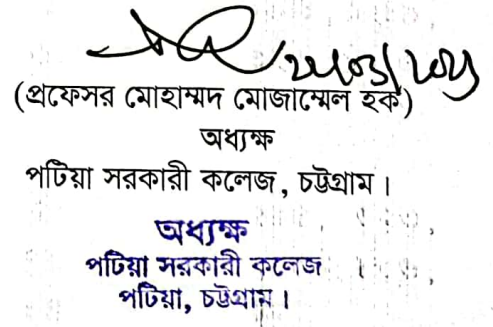 (প্রফেসর মোহাম্মদ মোজাম্মেল হক)
অধ্যক্ষ
পটিয়া সরকারী কলেজ, চট্টগ্রাম।
অধ্যক্ষ
পটিয়া সরকারী কলেজ
পটিয়া, চট্টগ্রাম।